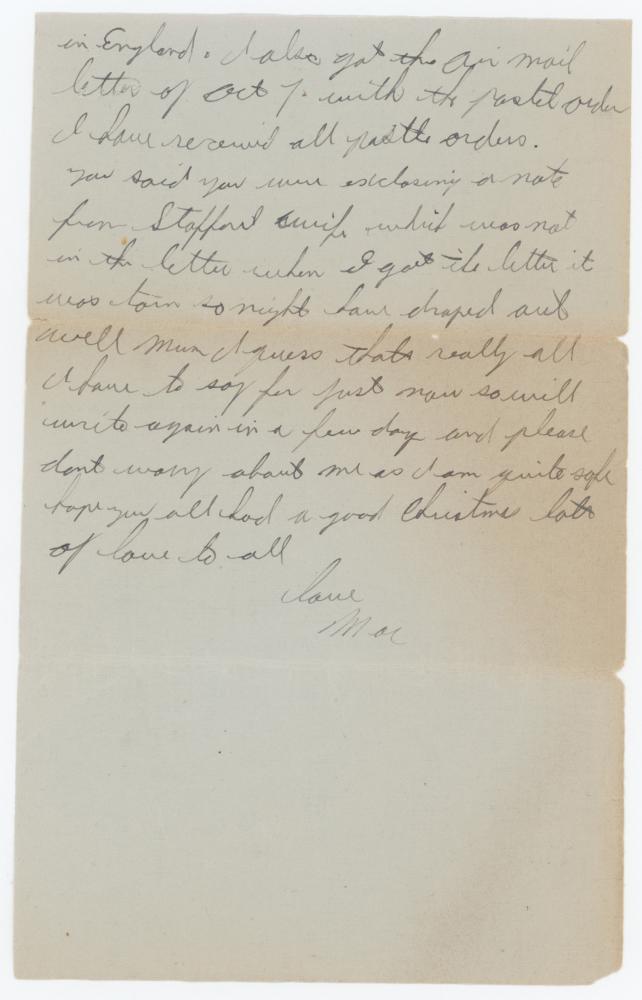 in England. I also got the Air mail
letter of Oct 7. with the postel order
I have received all postle orders.
you said you were exclosing a note
from Stafford wife which was not
in the letter when I got the letter it
was torn so might have droped out
well Mum I guess thats really all
I have to say for just now so will
write again in a few day and please
dont worry about me as I am quite safe
hope you all had a good Christmas lots
of love to all
love
Mac